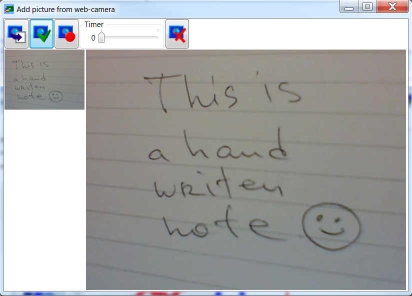 Add picture from web-camera
Timer
0
This is
a hand
writen
note
This is
a hand
writen
note